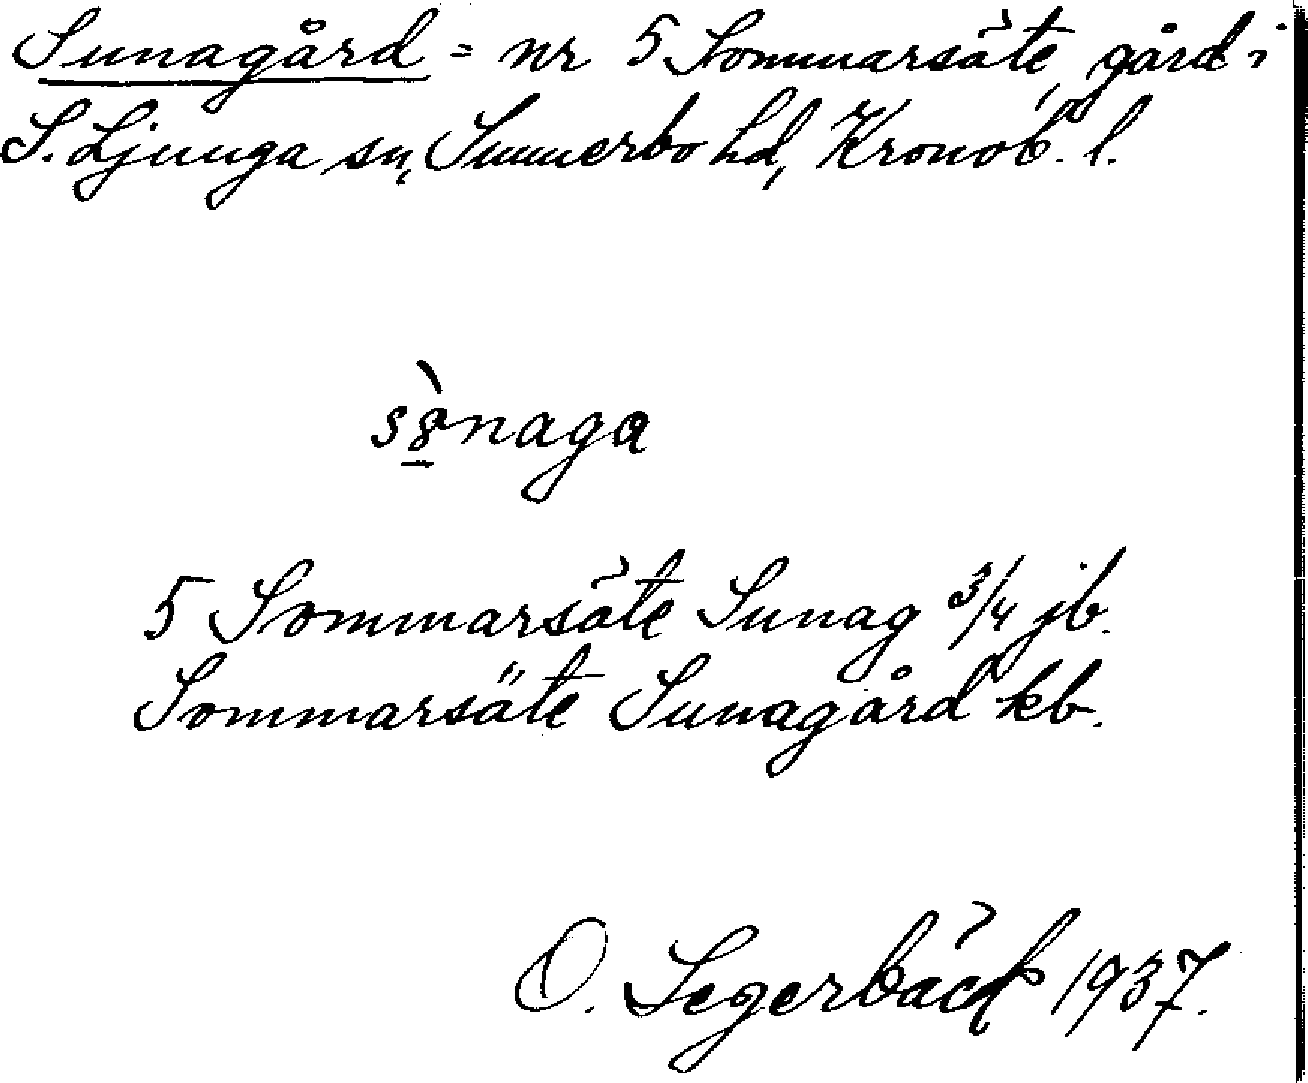 Sunagård = nr 5 Sommarsäte, gård i
S. Ljunga sn, Sunnerbo hd, Kronob. l.
5 Sommarsäte Sunag 3/4 jb.
Sommarsäte Sunagård kb.
O. Segerbäck 1937.